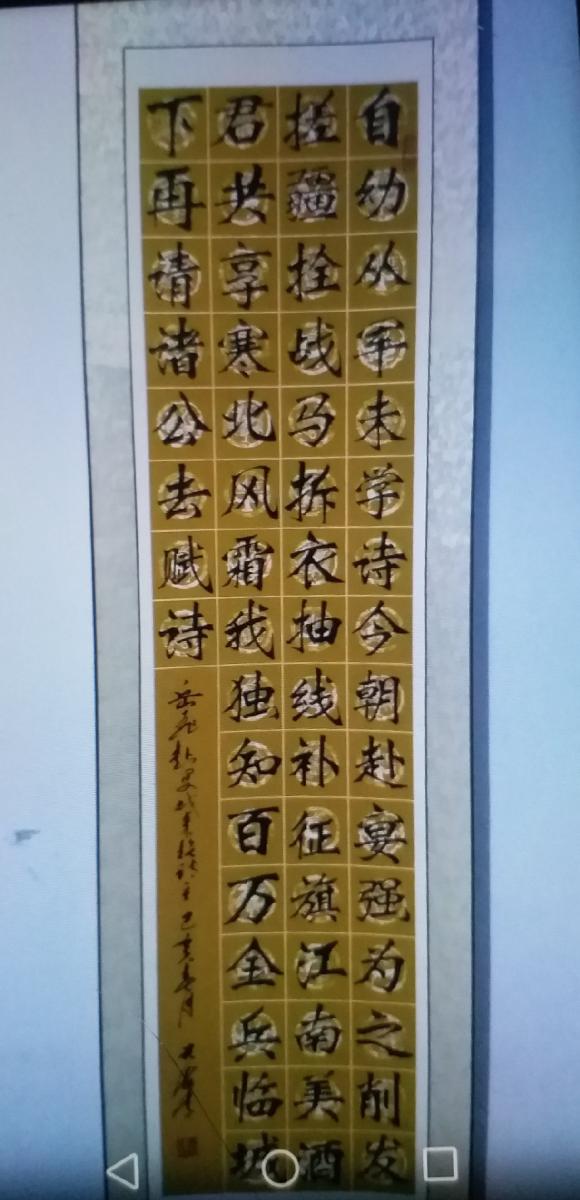 自幼从军未学诗今朝赴宴强为之削发
搓疆拴战马拆衣抽线补征旗江南美酒
君共享寒北风霜我独知百万金兵临城
下再请诸公去赋诗
岳飞赴宴 己亥春月